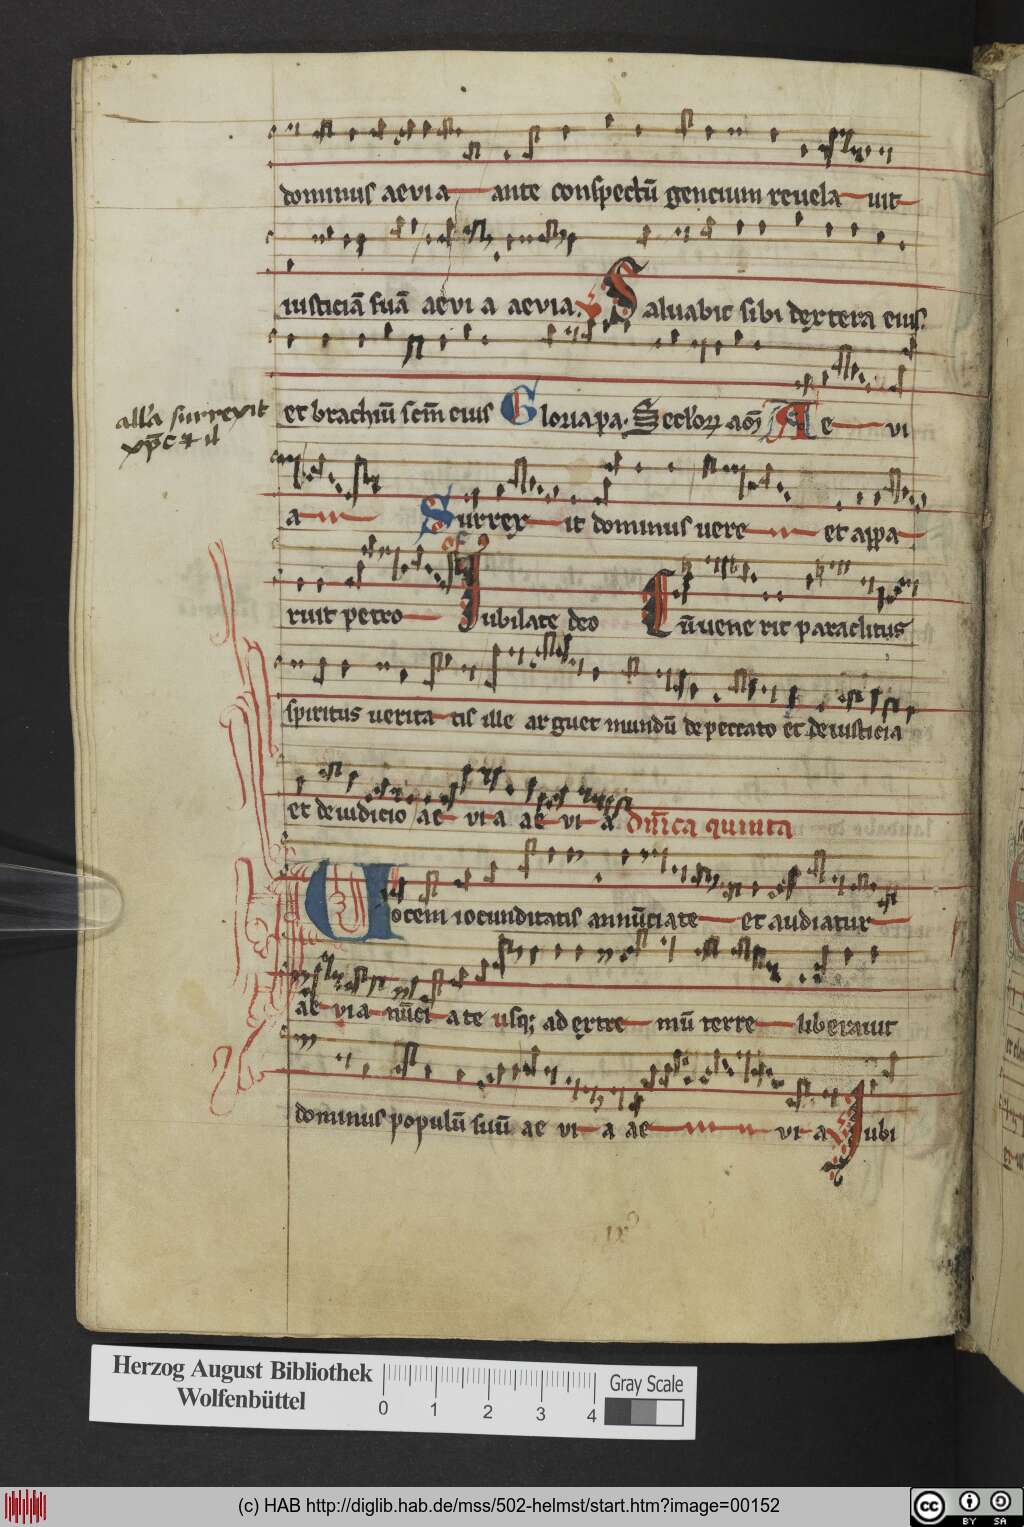 dominus aevia ante conspectū gencium reuela uit
iusticiā suā aevi a aevia. Saluabit sibi dextera eius.
et brachiū scm̄ eius Gloria pa. Seclorꝝ am̄ Ae vi
all'a surrexit
xp̄c
a Surrex it dominus uere et appa
ruit petro Iubilate deo Cūuene rit paraclitus
spiritus uerita tis ille arguet mundū de peccato et de iusticia
et de iudicio ae vi a ae vi a dn̄ica quinta
Uocem iocunditatis annūciate et audiatur
ae via nūci ate usq; ad extre mū terre liberauit
dominus populū suū ae vi a ae vi a Iubi
Herzog August Bibliothek
Wolfenbüttel
0 1 2 3 4
Gray Scale
(c) HAB http://diglib.hab.de/mss/502-helmst/start.htm?image=00152
cc BY SA